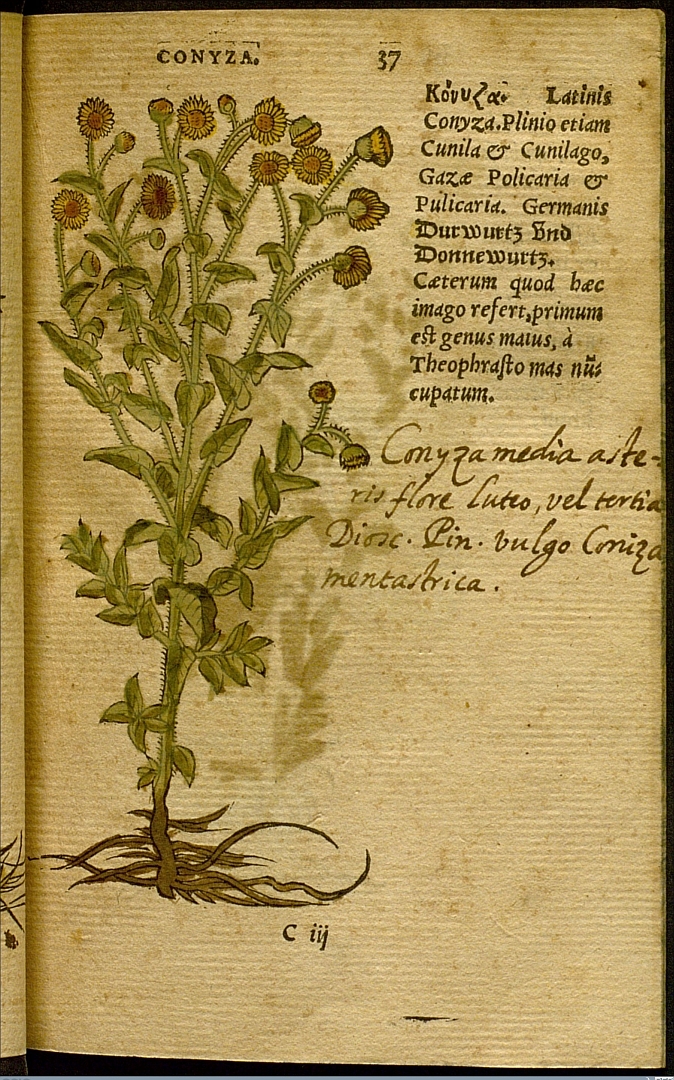 CONYZA.
37
Κόνυζα. Latinis
Conyza. Plinio etiam
Cunila & Cunilago,
Gazæ Policaria &
Pulicaria. Germanis
Durwurtz Vnd
Donnewurtz.
Cæterum quod hæc
imago refert, primum
est genus maius, à
Theophrasto mas nũ=
cupatum.
Conyza media aste-
ris flore luteo, vel tertia
Diosc. Pin. vulgo Coniza
mentastrica.
C iij